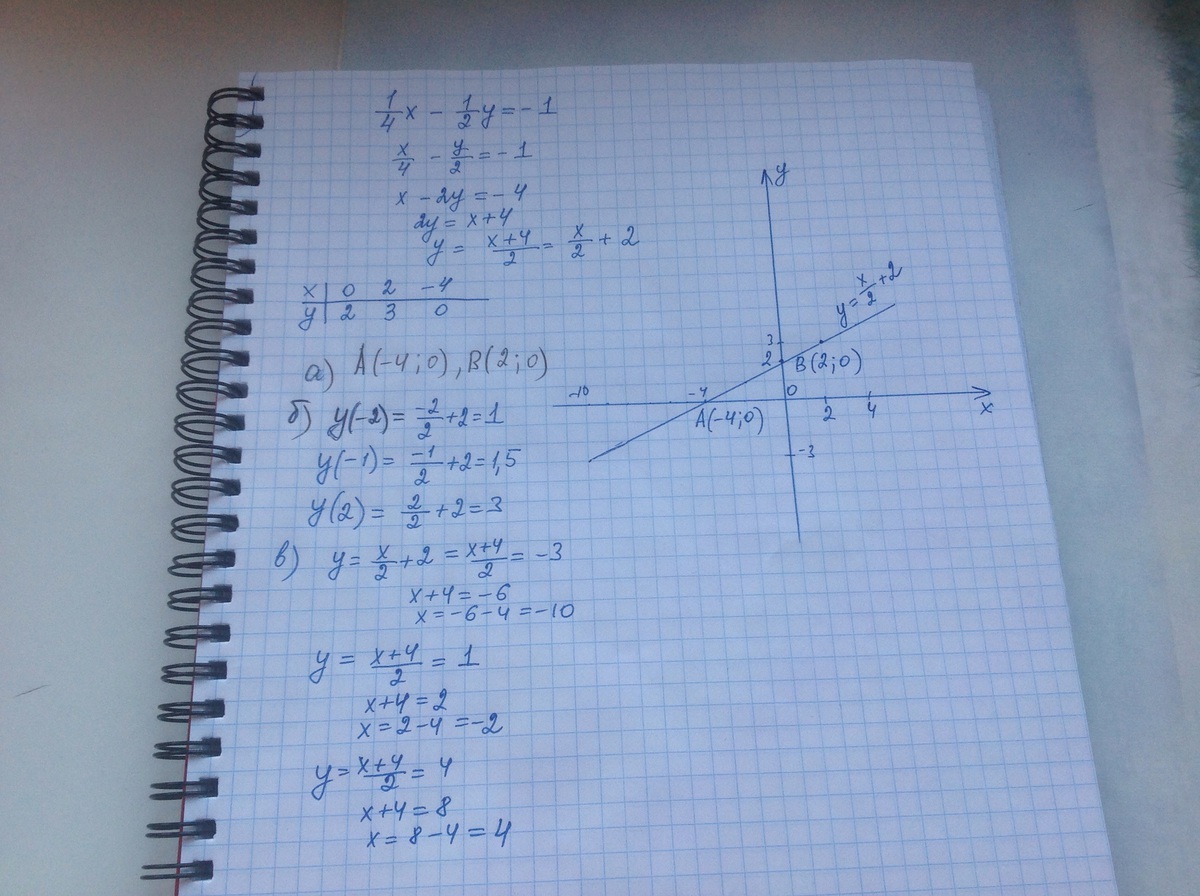 1/4 x - 1/2 y = -1
x/4 - y/2 = -1
x - 2y = -4
2y = x+4
y = (x+4)/2 = x/2 + 2
x | 0 2 -4
y | 2 3 0
а) A(-4;0), B(2;0)
б) y(-2) = -2/2 + 2 = 1
y(-1) = -1/2 + 2 = 1,5
y(2) = 2/2 + 2 = 3
в) y = x/2 + 2 = (x+4)/2 = -3
x+4 = -6
x = -6-4 = -10
y = (x+4)/2 = 1
x+4 = 2
x = 2-4 = -2
y = (x+4)/2 = 4
x+4 = 8
x = 8-4 = 4
y
y = x/2 + 2
3
2
B(2;0)
-10 -4 0
A(-4;0) 2 4 x
-3